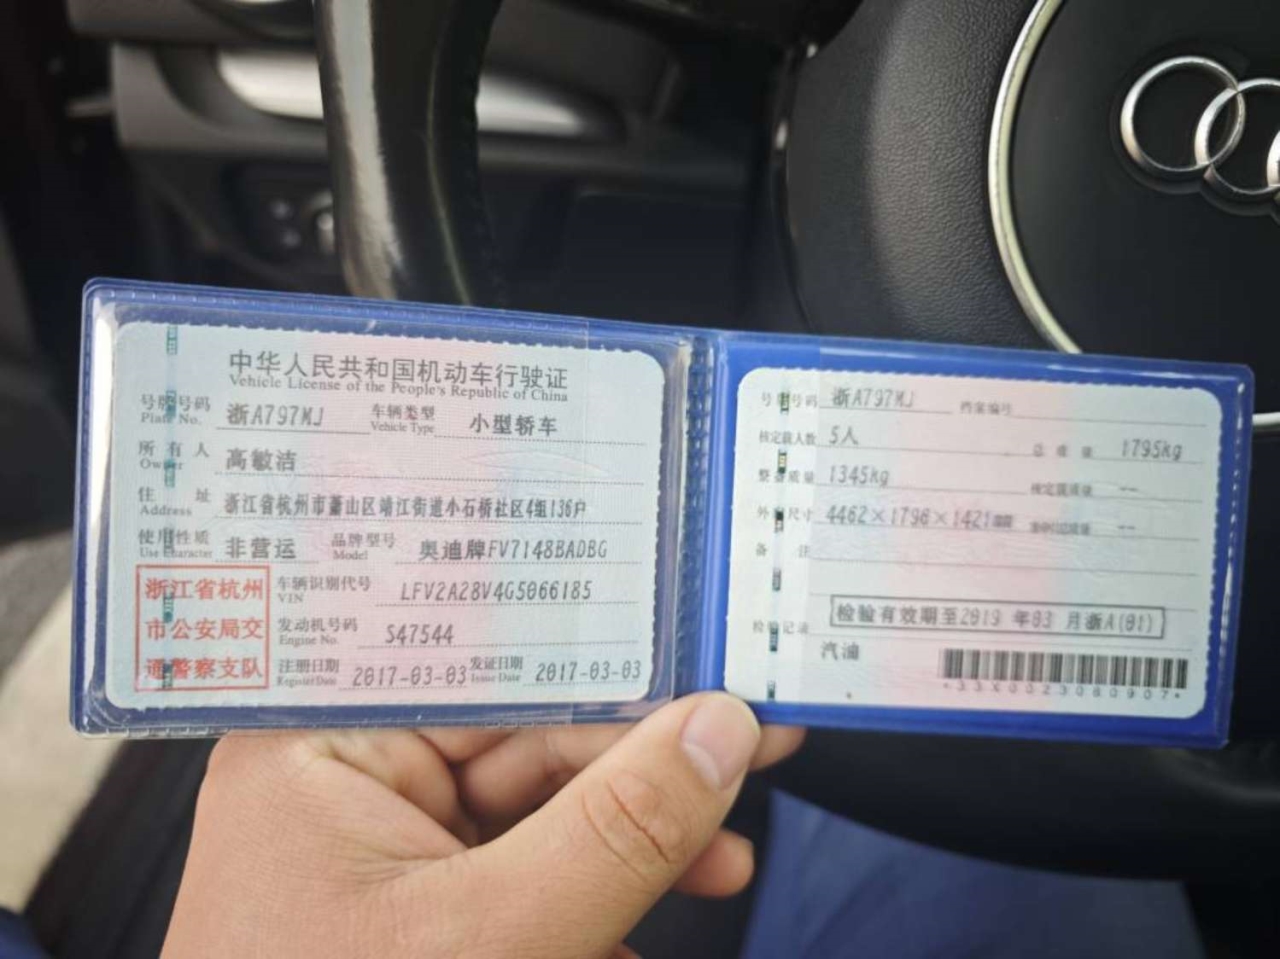 中华人民共和国机动车行驶证
Vehicle License of the People's Republic of China
号牌号码 浙A797MJ 车辆类型 小型轿车
Plate No. Vehicle Type
所有人 高敏洁
Owner
住址 浙江省杭州市萧山区靖江街道小石桥社区4组136户
Address
使用性质 非营运 品牌型号 奥迪牌FV7148BADBG
Use Character Model
浙江省杭州
市公安局交
通警察支队
车辆识别代号 LFV2A28V4G5066185
VIN
发动机号码 S47544
Engine No.
注册日期 2017-03-03 发证日期 2017-03-03
Register Date Issue Date
号牌号码 浙A797MJ 档案编号
核定载人数 5人 总质量 1795kg
整备质量 1345kg 核定载质量 --
外廓尺寸 4462×1796×1421 --
备注
检验记录 检验有效期至2019 年03 月浙A(01)
汽油
*33X0023080907*